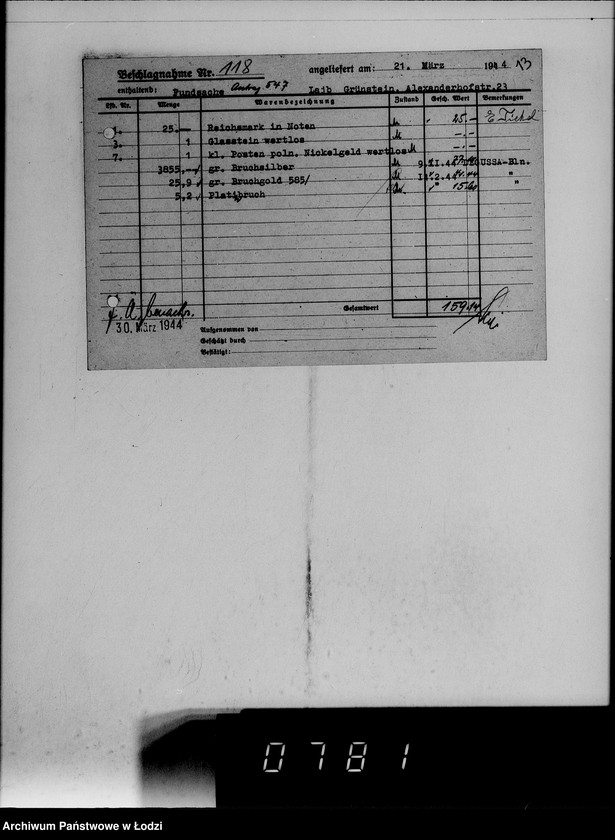 Beschlagnahme Nr. 118 angeliefert am: 21. März 1944
enthaltend: Fundsache Antrag 547 Laib Grünstein, Alexanderhofstr.23
Lfd. Nr. Menge Warenbezeichnung Zustand Gesch. Wert Bemerkungen
1. 25.— Reichsmark in Noten 25.—
3. 1 Glasstein wertlos -.-
7. 1 kl. Posten poln. Nickelgeld wertlos -.-
3855,— gr. Bruchsilber DEGUSSA-Bln.
25,9 gr. Bruchgold 585/ "
5,2 Platinbruch "
Gesamtwert
30. März 1944
Aufgenommen von
Geschätzt durch
Bestätigt:
0781
Archiwum Państwowe w Łodzi